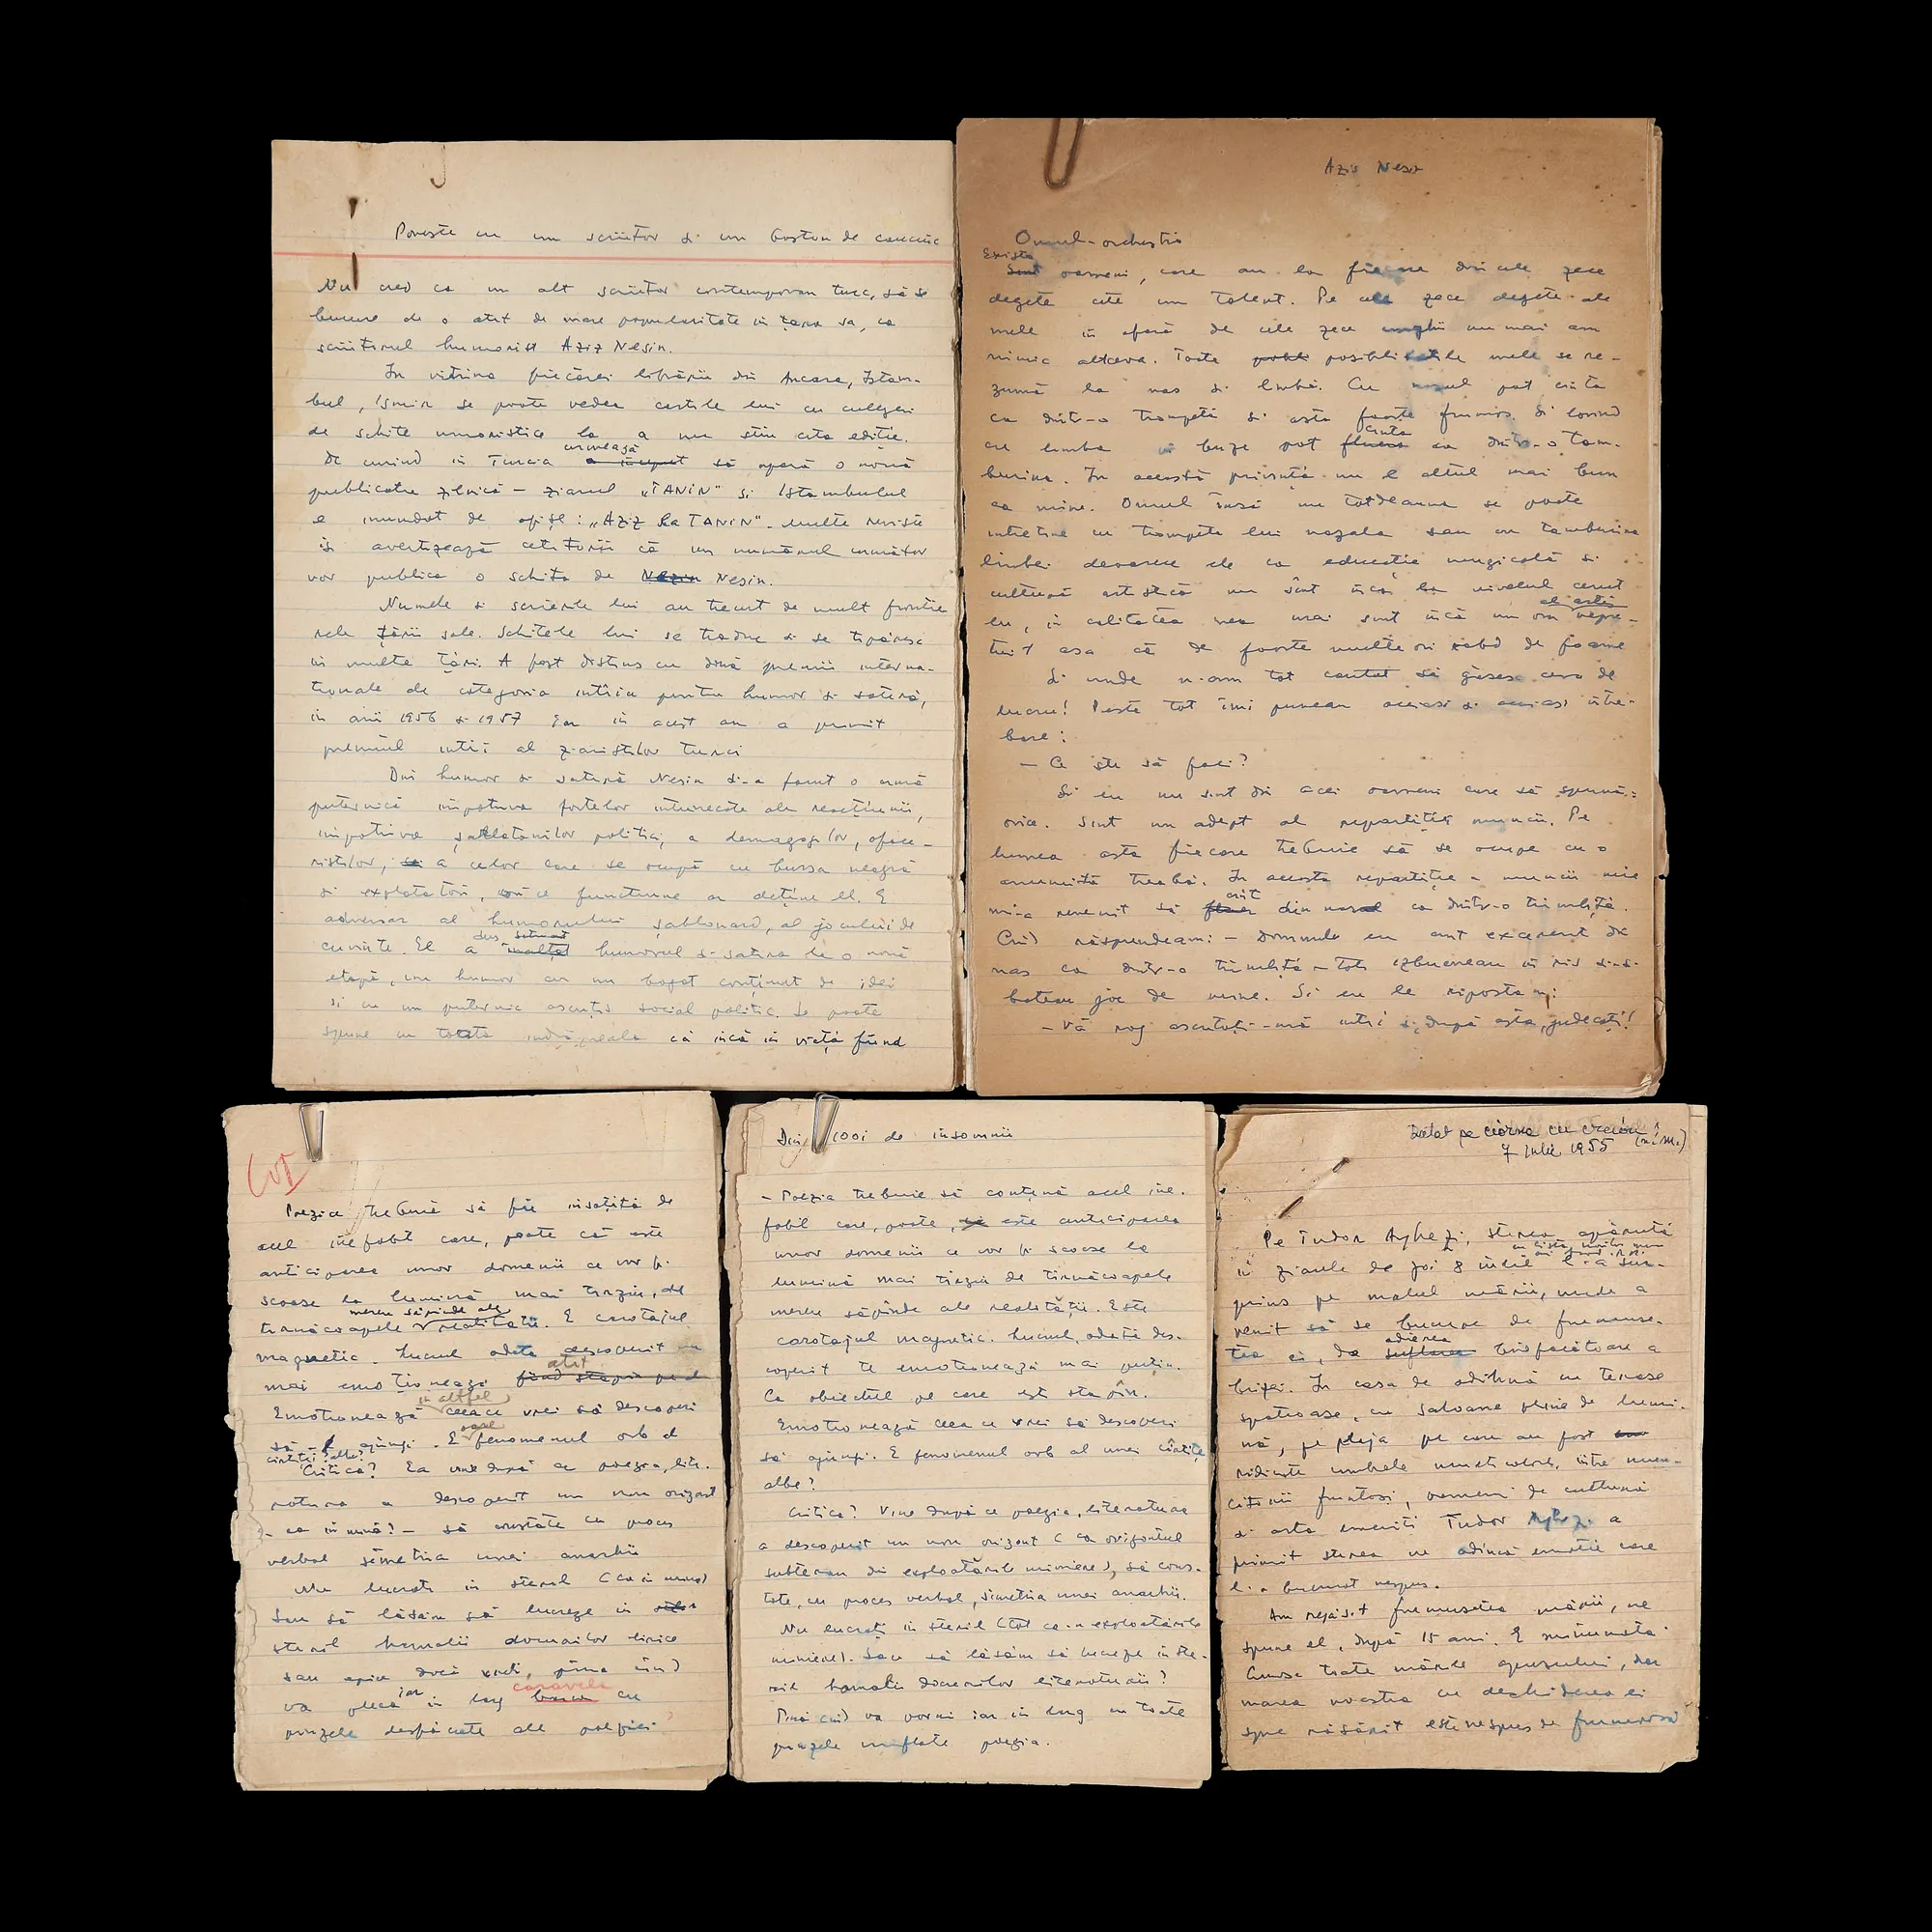 Poveste cu un scriitor si un baston de cauciuc
Nu cred ca un alt scriitor contemporan turc, să se
bucure de o atît de mare popularitate in țara sa, ca
scriitorul humorist Aziz Nesin.
In vitrina fiecărei librării din Ancara, Istam-
bul, Ismir se poate vedea cartile lui cu culegeri
de schite umoristice la a nu stiu cita editie.
urmează
De curind in Turcia a inceput să apară o nouă
publicatie zilnică – ziarul „TANIN" si Istambulul
e inundat de afișe: „Aziz la TANIN". Multe reviste
isi avertizează cititorii că in numărul următor
vor publica o schita de Nezin Nesin.
Numele si scrierile lui au trecut de mult frontie
rele țării sale. Schitele lui se traduc si se tipăresc
in multe țări. A fost distins cu două premii interna-
tionale de categoria intîia pentru humor si satiră,
in anii 1956 si 1957 Iar in acest an a primit
premiul intîi al ziaristilor turci
Din humor si satiră Nesin si-a facut o armă
puternică impotriva fortelor intunecate ale reacțiunii,
impotriva șarlatanilor politici, a demagogilor, aface-
ristilor, a celor care se ocupă cu bursa neagră
si exploatatori, ori ce functiune ar deține el. E
adversar al humorului sablonard, al jocului de
dus
cuvinte. El a inaltat humorul si satira la o nouă
etapă, un humor cu un bogat conținut de idei
si cu un puternic ascuțis social politic. Se poate
spune cu toata indrăzneala că incă in viață fiind
Azis Nesin
Omul-orchestra
Exista
Sint oameni, care au la fiecare din cele zece
degete cite un talent. Pe cele zece degete ale
mele in afară de cele zece unghii nu mai am
nimic altceva. Toate posibilitatile mele se re-
zumă la nas si limbă. Cu nasul pot cinta
ca dintr-o trompetă si asta foarte frumos. Si lovind
cinta
cu limba in buze pot fluera ca dintr-o tam-
burina. In această privință nu e altul mai bun
ca mine. Omul insă nu totdeauna se poate
intretine cu trompeta lui nazala sau cu tamburina
limbei deoarece ele ca educatie muzicală si
cultură artistică nu sînt incă la nivelul cerut
eu, in calitatea mea mai sint incă un om nepre-
tuit asa că de foarte multe ori rabd de foame
Si unde n-am tot cautat să găsesc ceva de
lucru! Peste tot îmi puneau aceiasi si aceiasi între-
bare:
– Ce stii să faci?
Si eu nu sint din acei oameni care să spună:
orice. Sint un adept al repartiției muncii. Pe
lumea asta fiecare trebuie să se ocupe cu o
anumită treabă. In aceasta repartiție a muncii mie
cint
mi-a revenit să din nasul ca dintr-o trimbiță.
Cînd răspundeam: – Domnule eu cint excelent din
nas ca dintr-o trimbiță – toti izbucneau in ris si-si
bateau joc de mine. Si eu le ripostam:
– Vă rog ascultați-mă intîi si, după asta, judecați!
Poezia trebuie să fie insoțită de
acel inefabil care, poate că este
anticiparea unor domenii ce vor fi
scoase la lumină mai tirziu, de
mereu săpinde ale
tirnăcoapele realității. E carotajul
magnetic. Lucrul odata descoperit nu
atit
mai emoționează fiind stapin pe el
in altfel
Emotionează ceea ce vrei să descoperi
oare
să ajungi. E fenomenul orb al
cirtiței albe?
Critica? Ea vine după ce poezia, lite-
ratura a descoperit un nou orizont
– ca in mină? – să constate cu proces
verbal simetria unei anarhii
Nu lucrati in steril (ca in mină)
Sau să lăsăm să lucreze in
steril hamalii docurilor lirice
sau epice pina cind
caravela
va pleca iar in larg barca cu
pinzele desfăcute ale poeziei
Din 1001 de insomnii
– Poezia trebuie să conțină acel ine-
fabil care, poate, este anticiparea
unor domenii ce vor fi scoase la
lumină mai tirziu de tirnăcoapele
mereu săpinde ale realității. Este
carotajul magnetic. Lucrul, odată des-
coperit te emotionează mai putin.
Ca obiectul pe care esti stapîn.
Emotionează ceea ce vrei să descoperi
să ajungi. E fenomenul orb al unei cîrtițe
albe?
Critica? Vine după ce poezia, literatura
a descoperit un nou orizont (ca orizontul
subteran din exploatările miniere), să cons-
tate, cu proces verbal, simetria unei anarhii.
Nu lucrați in steril (tot ca-n exploatările
miniere). Sau să lăsăm să lucreze in ste-
ril hamalii docurilor literaturii?
Pină cind va porni iar in larg cu toate
pinzele umflate poezia.
Dictat pe ciorna cu creion (n. m.)
7 Iulie 1955
Pe Tudor Arghezi, stirea apărută
in ziarele de joi 8 iulie l-a sur-
prins pe malul mării, unde a
venit să se bucure de frumuse-
adierea
tea ei, de suflarea binefăcătoare a
brizei. In casa de odihnă cu terase
spatioase, cu saloane pline de lumi-
nă, pe plaja pe care au fost
ridicate umbrele multicolore, intre mun-
citorii fruntasi, oameni de cultură
si arta emeriti Tudor Arghezi a
primit stirea cu adincă emotie care
l-a bucurat nespus.
Am regăsit frumusetea mării, ne
spune el, după 15 ani. E minunată.
Cunosc toate mările apusului, dar
marea noastra cu deschiderea ei
spre răsărit este nespus de frumoasă